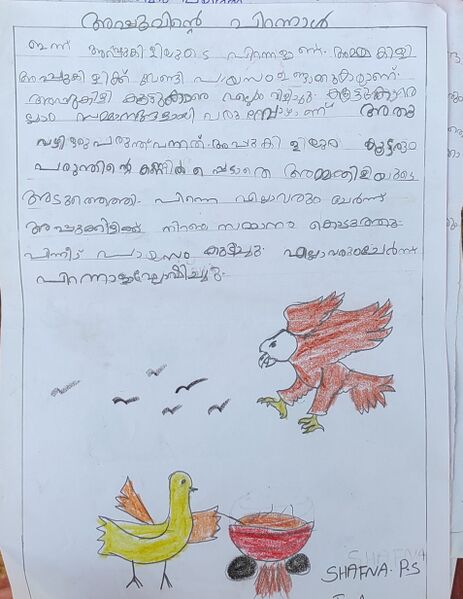 അപ്പുവിന്റെ പിറന്നാൾ
ഇന്ന് അപ്പുകിളിയുടെ പിറന്നാളാണ്. അമ്മകിളി
അപ്പുകിളിക്ക് വേണ്ടി പായസം ഉണ്ടാക്കുകയാണ്.
അപ്പുകിളി കൂട്ടുകാരെ എല്ലാം വിളിച്ചു. കൂട്ടുകാരെ
ല്ലാം സമ്മാനങ്ങളുമായി വരുമ്പോഴാണ് അതു
വഴി ഒരു പരുന്ത് വന്നത്. അപ്പുകിളിയുടെ കൂട്ടരും
പരുന്തിന്റെ കണ്ണിൽ പെടാതെ അമ്മക്കിളിയുടെ
അടുത്തെത്തി. പിന്നെ എല്ലാവരും ചേർന്ന്
അപ്പുക്കിളിക്ക് നിറയെ സമ്മാനം കൊടുത്തു.
പിന്നീട് പായസം കുടിച്ചു. എല്ലാവരുംചേർന്ന്
പിറന്നാളാഘോഷിച്ചു.
SHAFNA
SHAFNA P.S